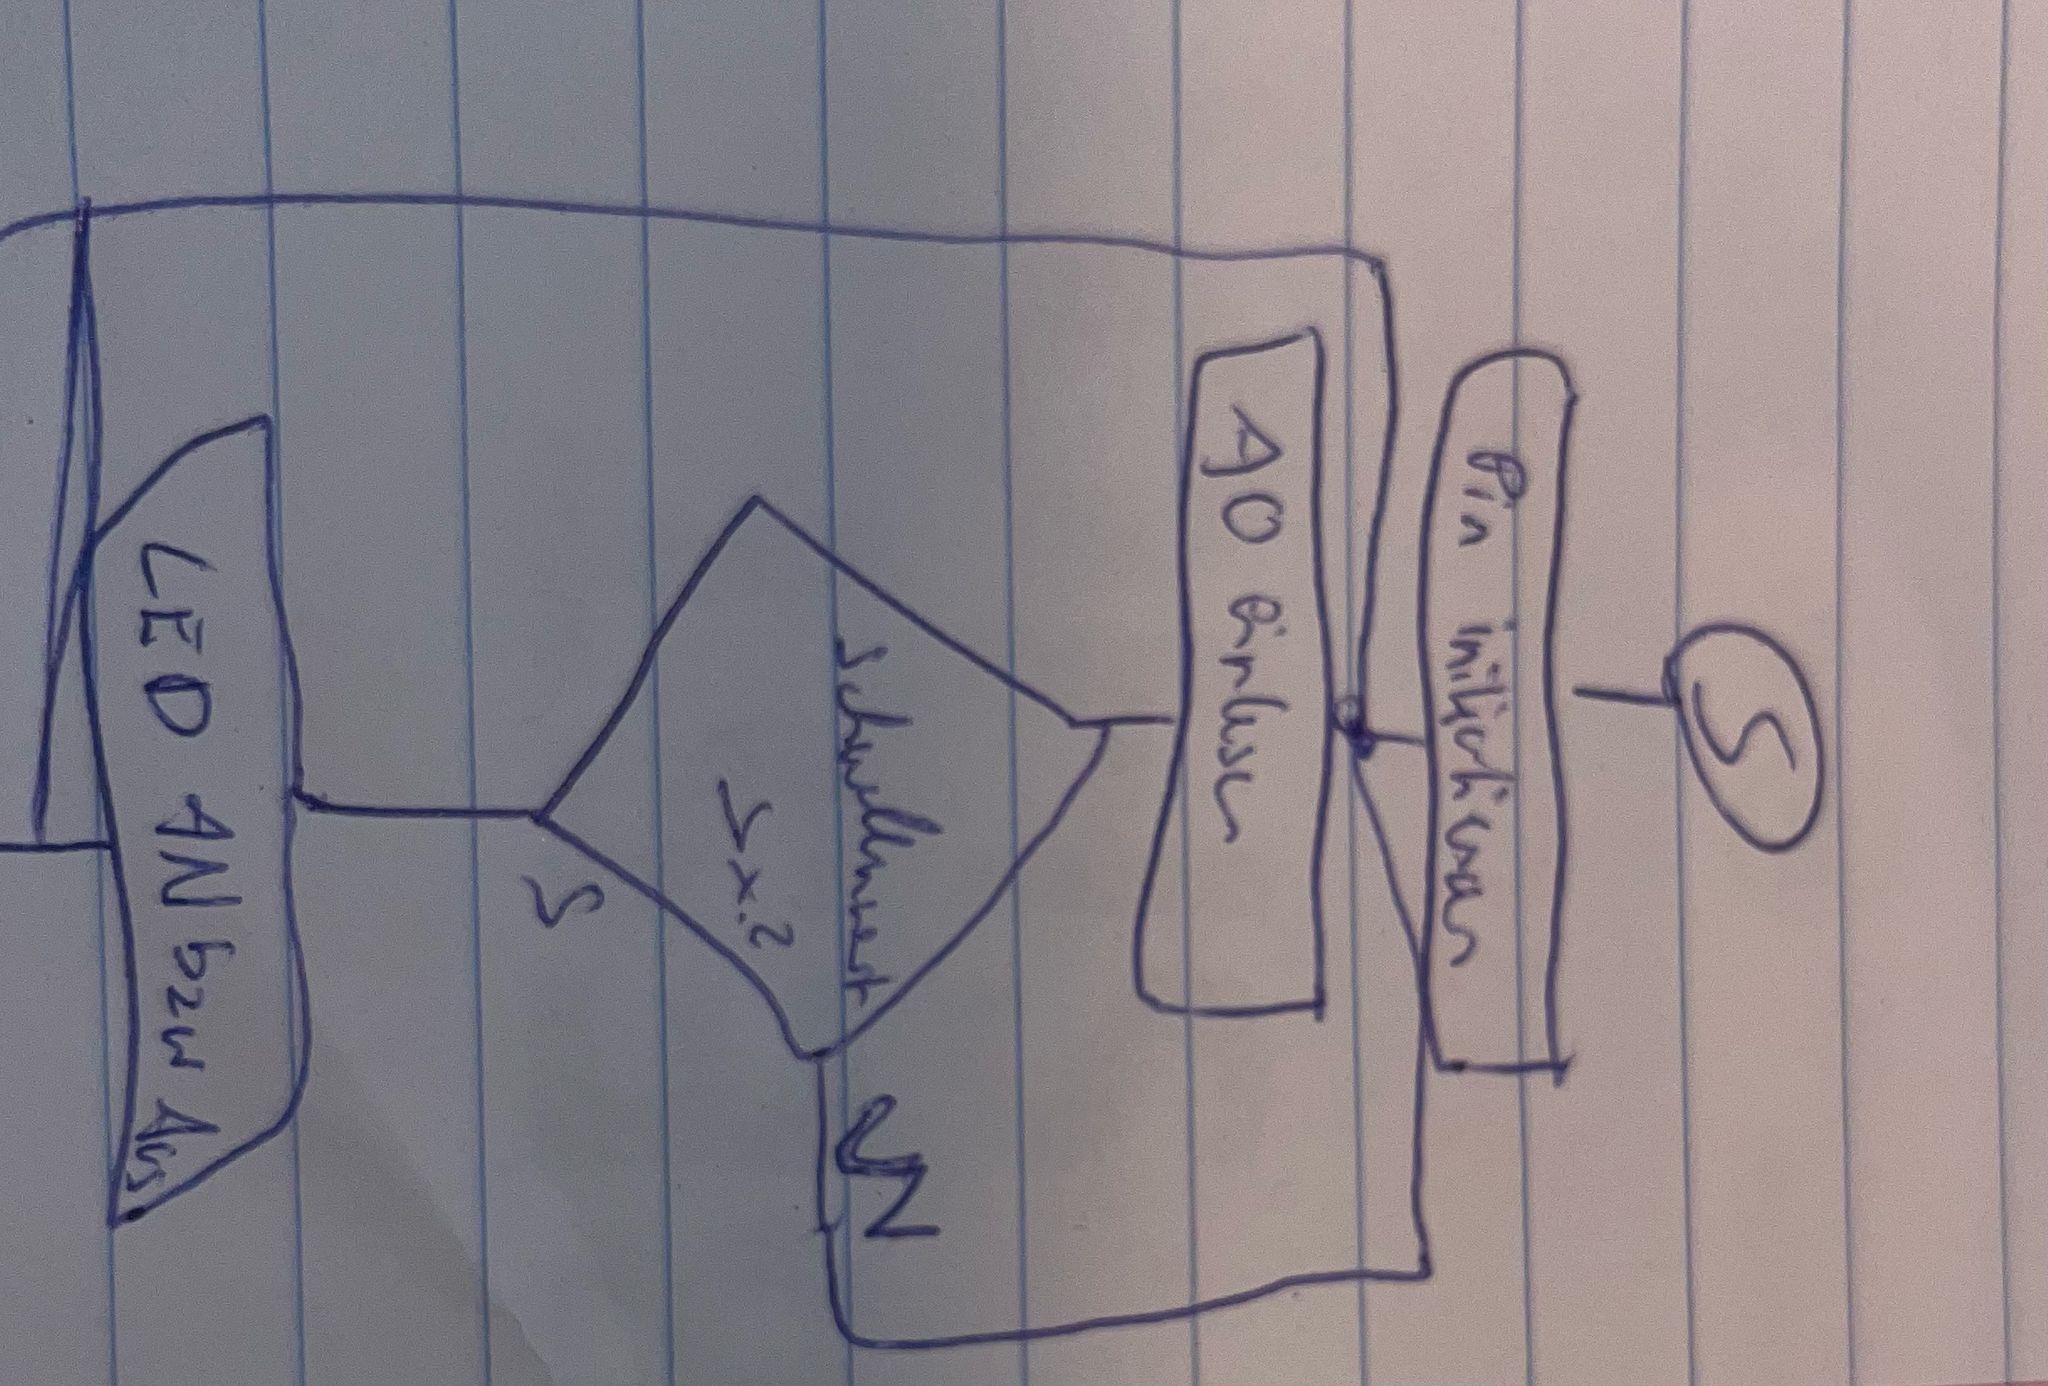 S
Pin initialisieren
A0 einlesen
Schwellwert
N
J
LED AN bzw Aus